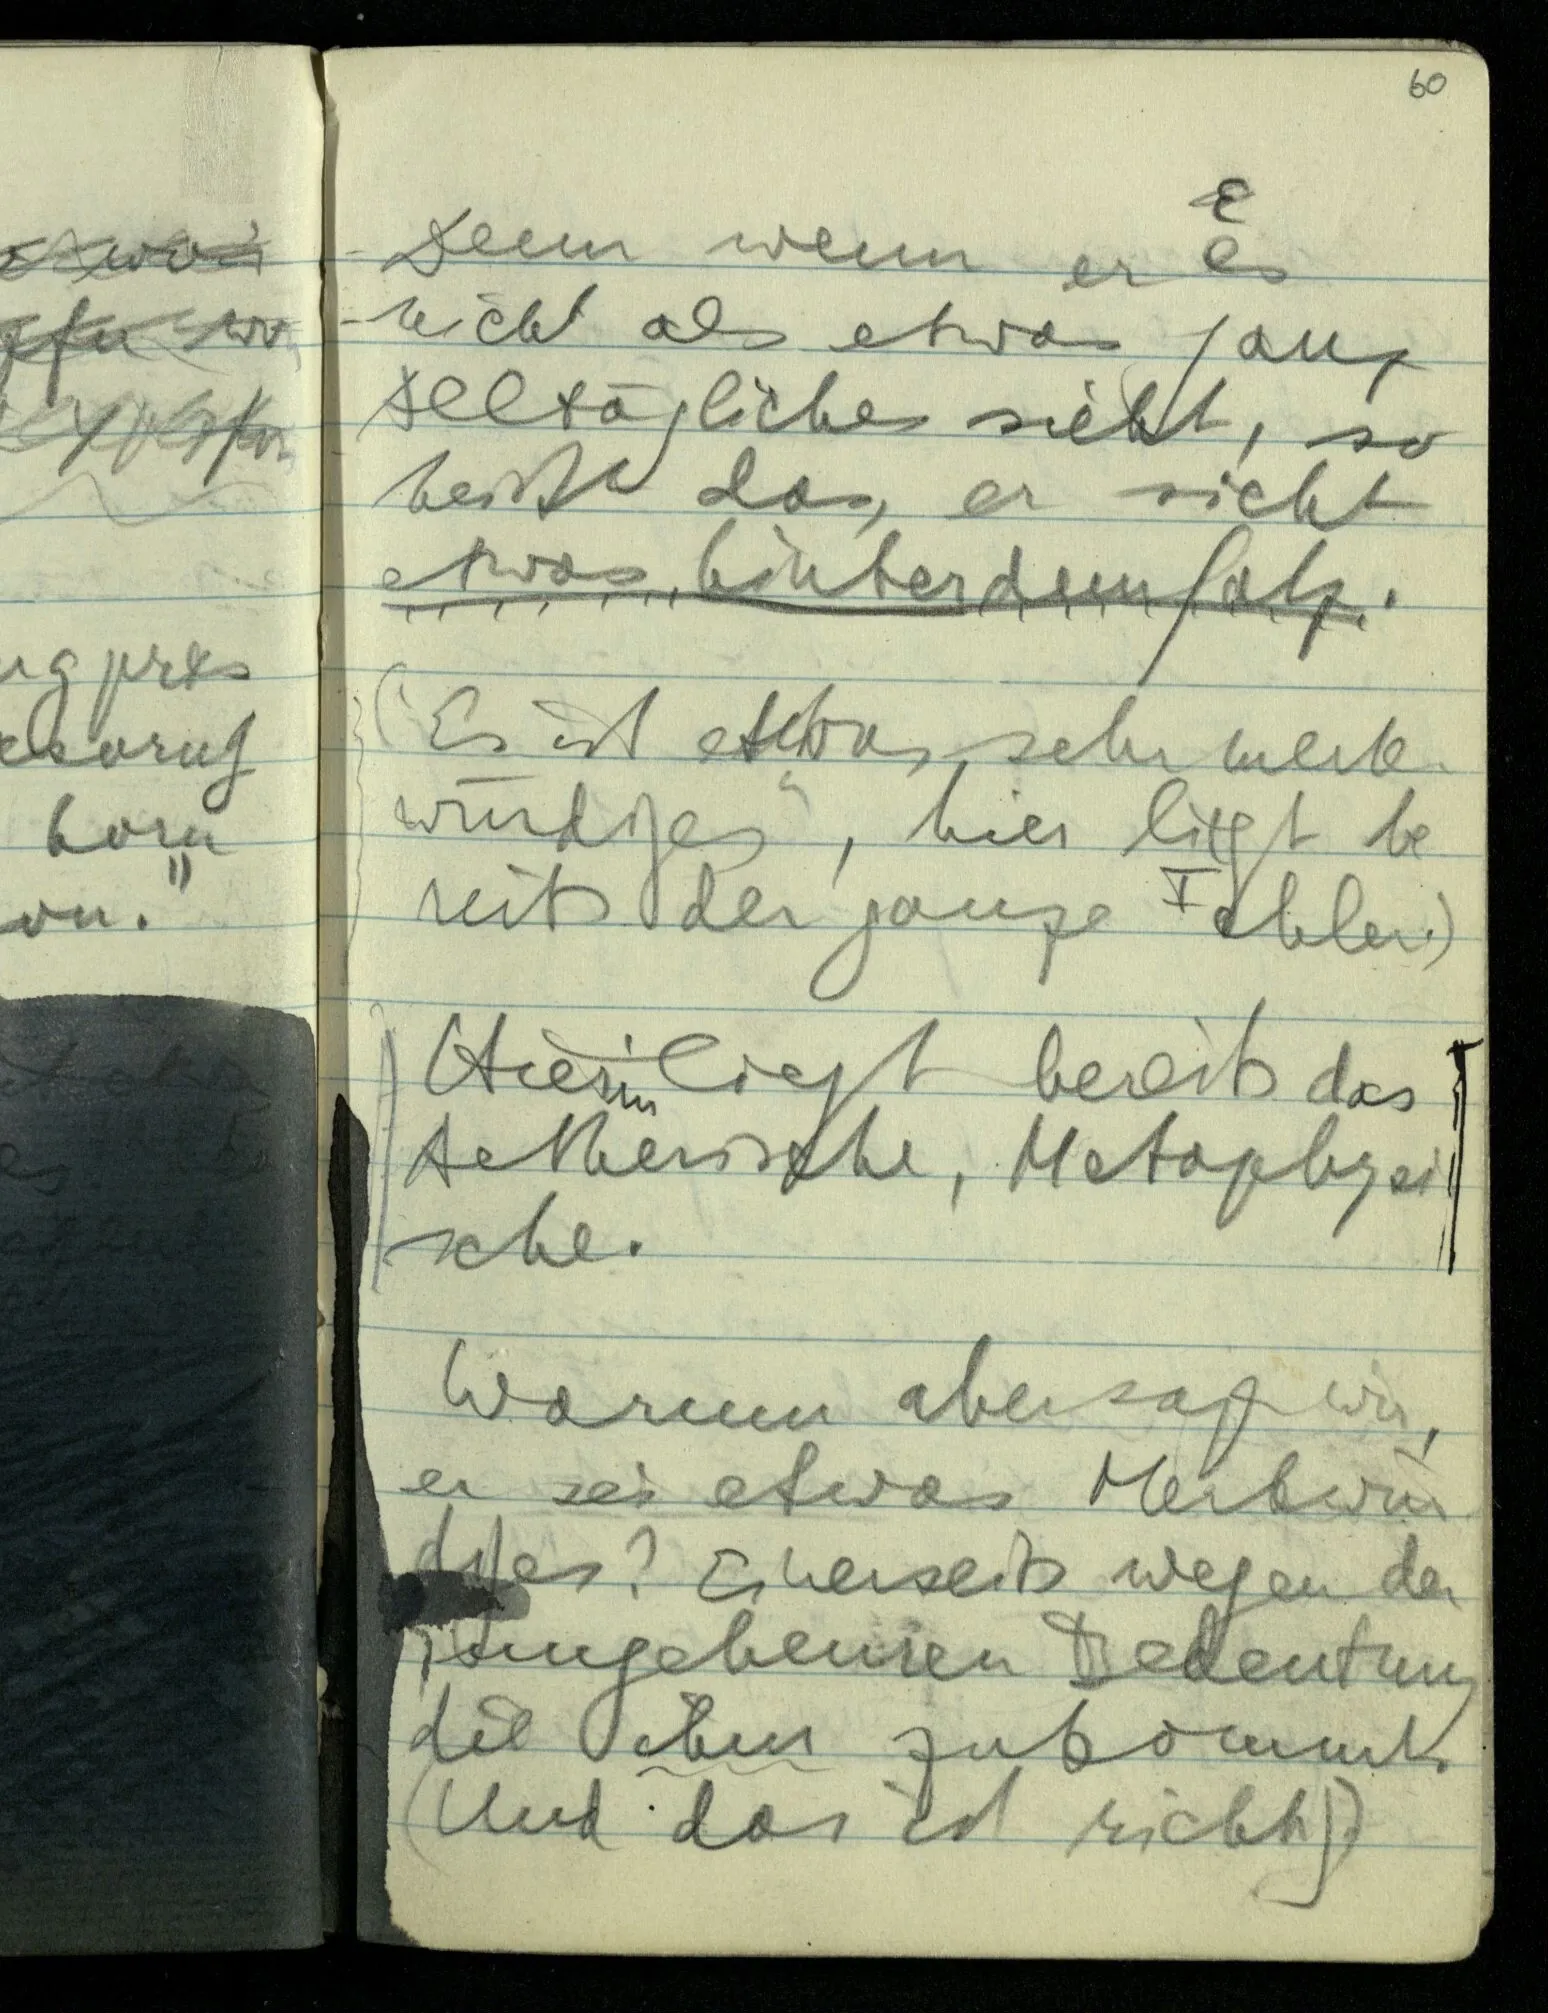 60
E
Denn wenn er es
nicht als etwas ganz
Alltägliches sieht, so
heißt das, er sieht
etwas hinter dem Satz.
(„Es ist etwas sehr merk-
würdiges", hier liegt be
reits der ganze Fehler.)
Hierin liegt bereits das
Aetherische, Metaphysi
sche.
Warum aber sagen wir,
er sei etwas Merkwür
diges? Einerseits wegen der
ungeheuren Bedeutung
die ihm zukommt.
(Und das ist richtig)
born